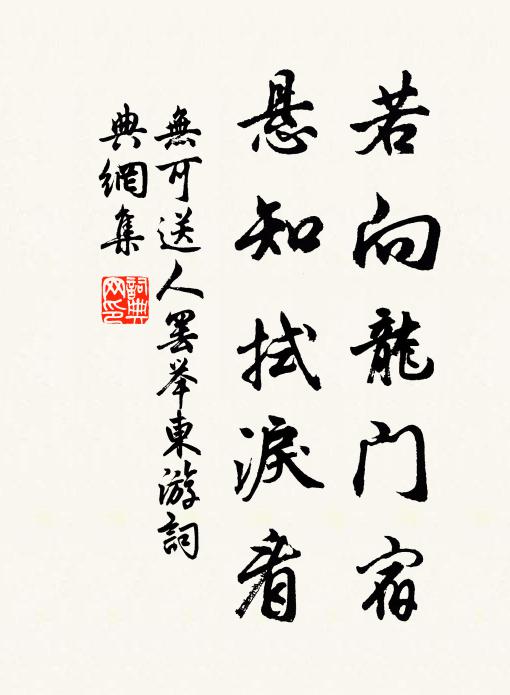 若向龍门宿
悬知拭淚看
無可送人罢举東游詞
典網集
詞典网印